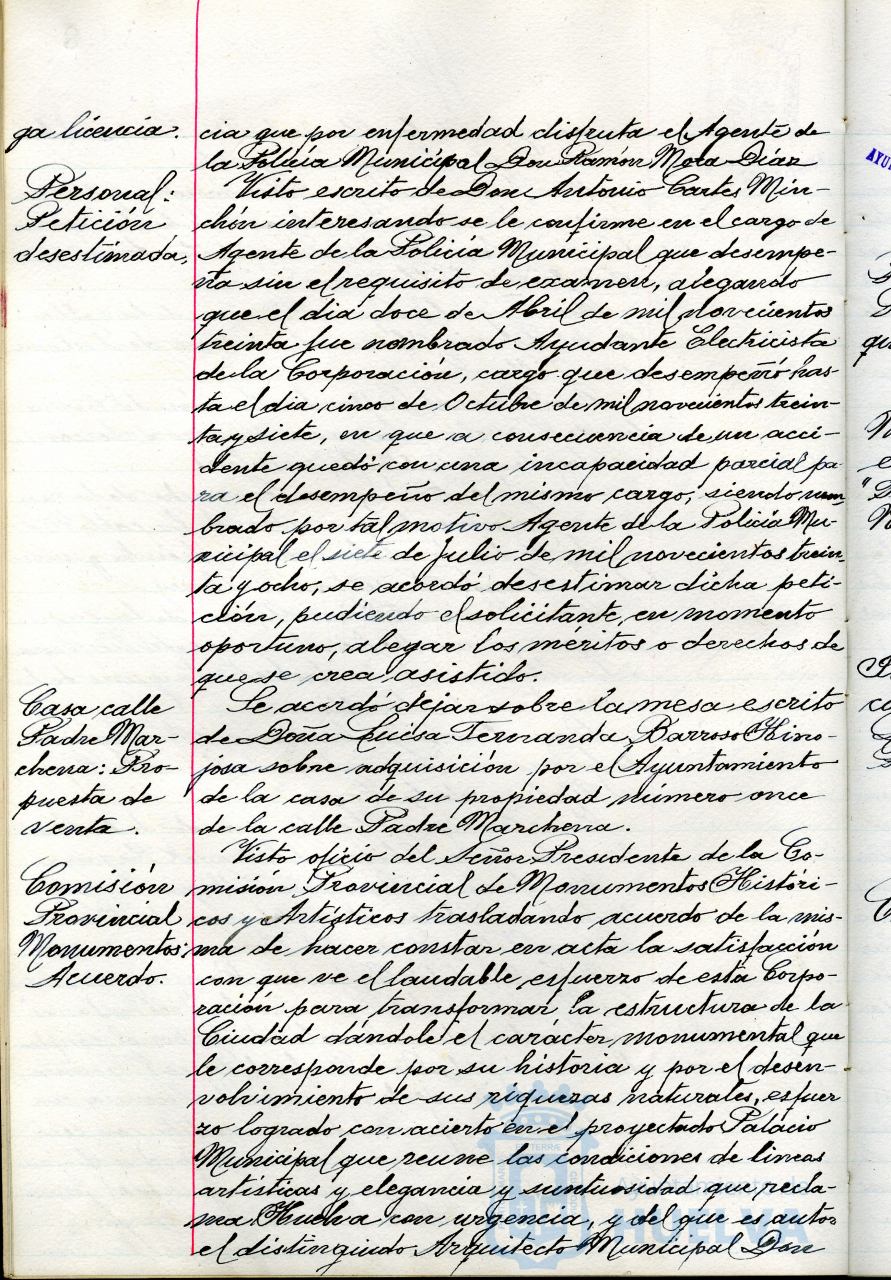 ga licencia.
cia que por enfermedad disfruta el Agente de
la Policía Municipal Don Ramón Mora Díaz
Personal:
Petición
desestimada.
Visto escrito de Don Antonio Cartes Min-
chón interesando se le confirme en el cargo de
Agente de la Policía Municipal que desempe-
ña sin el requisito de examen, alegando
que el dia doce de Abril de mil novecientos
treinta fue nombrado Ayudante Electricista
de la Corporación, cargo que desempeñó has-
ta el dia cinco de Octubre de mil novecientos trein-
ta y siete, en que a consecuencia de un acci-
dente quedó con una incapacidad parcial pa-
ra el desempeño del mismo cargo; siendo nom-
brado por tal motivo Agente de la Policía Mu-
nicipal el siete de Julio de mil novecientos trein-
ta y ocho, se acordó desestimar dicha peti-
ción, pudiendo el solicitante, en momento
oportuno, alegar los méritos o derechos de
que se crea asistido.
Casa calle
Padre Mar-
chena: Pro-
puesta de
venta.
Se acordó dejar sobre la mesa escrito
de Doña Luisa Fernanda Barroso Hino-
josa sobre adquisición por el Ayuntamiento
de la casa de su propiedad número once
de la calle Padre Marchena.
Comisión
Provincial
Monumentos:
Acuerdo.
Visto oficio del Señor Presidente de la Co-
misión Provincial de Monumentos Históri-
cos y Artísticos trasladando acuerdo de la mis-
ma de hacer constar en acta la satisfacción
con que ve el laudable esfuerzo de esta Corpo-
ración para transformar la estructura de la
Ciudad dándole el carácter monumental que
le corresponde por su historia y por el desen-
volvimiento de sus riquezas naturales, esfuer
zo logrado con acierto en el proyectado Palacio
Municipal que reune las condiciones de lineas
artísticas y elegancia y suntuosidad que recla-
ma Huelva con urgencia, y del que es autor
el distinguido Arquitecto Municipal Don
Ayuntamiento de
HUELVA